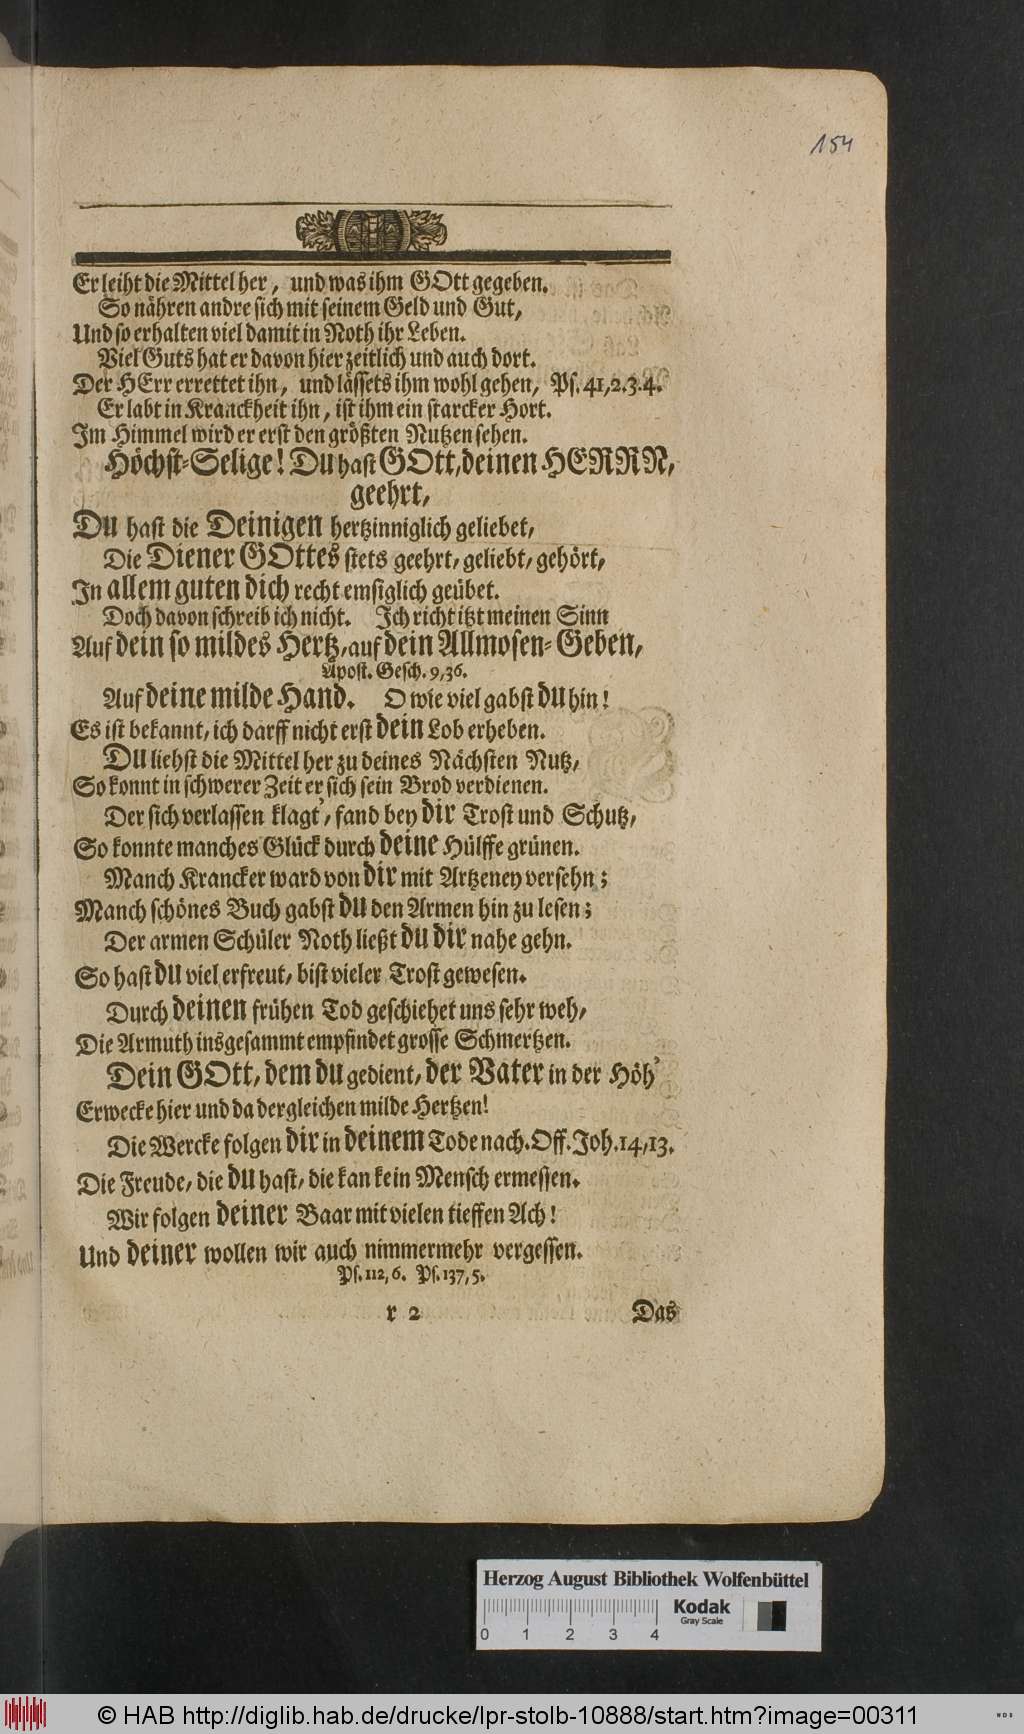 154
Er leiht die Mittel her, und was ihm GOtt gegeben.
So nähren andre sich mit seinem Geld und Gut,
Und so erhalten viel damit in Noth ihr Leben.
Viel Guts hat er davon hier zeitlich und auch dort.
Der HErr errettet ihn, und lässets ihm wohl gehen, Ps. 41,2.3.4.
Er labt in Kranckheit ihn, ist ihm ein starcker Hort.
Im Himmel wird er erst den größten Nutzen sehen.
Höchst-Selige! Du hast GOtt, deinen HERRN,
geehrt,
Du hast die Deinigen hertzinniglich geliebet,
Die Diener GOttes stets geehrt, geliebt, gehört,
In allem guten dich recht emsiglich geübet.
Doch davon schreib ich nicht. Ich richt itzt meinen Sinn
Auf dein so mildes Hertz, auf dein Allmosen-Geben,
Apost. Gesch. 9,36.
Auf deine milde Hand. O wie viel gabst du hin!
Es ist bekannt, ich darff nicht erst dein Lob erheben.
Du liehst die Mittel her zu deines Nächsten Nutz,
So konnt in schwerer Zeit er sich sein Brod verdienen.
Der sich verlassen klagt', fand bey dir Trost und Schutz,
So konnte manches Glück durch deine Hülffe grünen.
Manch Krancker ward von dir mit Artzeney versehn;
Manch schönes Buch gabst du den Armen hin zu lesen;
Der armen Schüler Noth ließt du dir nahe gehn.
So hast du viel erfreut, bist vieler Trost gewesen.
Durch deinen frühen Tod geschiehet uns sehr weh,
Die Armuth insgesammt empfindet grosse Schmertzen.
Dein GOtt, dem du gedient, der Vater in der Höh'
Erwecke hier und da dergleichen milde Hertzen!
Die Wercke folgen dir in deinem Tode nach. Off. Joh. 14,13.
Die Freude, die du hast, die kan kein Mensch ermessen.
Wir folgen deiner Baar mit vielen tieffen Ach!
Und deiner wollen wir auch nimmermehr vergessen.
Ps. 112,6. Ps. 137,5.
r 2 Das
Herzog August Bibliothek Wolfenbüttel
Kodak
Gray Scale
0 1 2 3 4
© HAB http://diglib.hab.de/drucke/lpr-stolb-10888/start.htm?image=00311